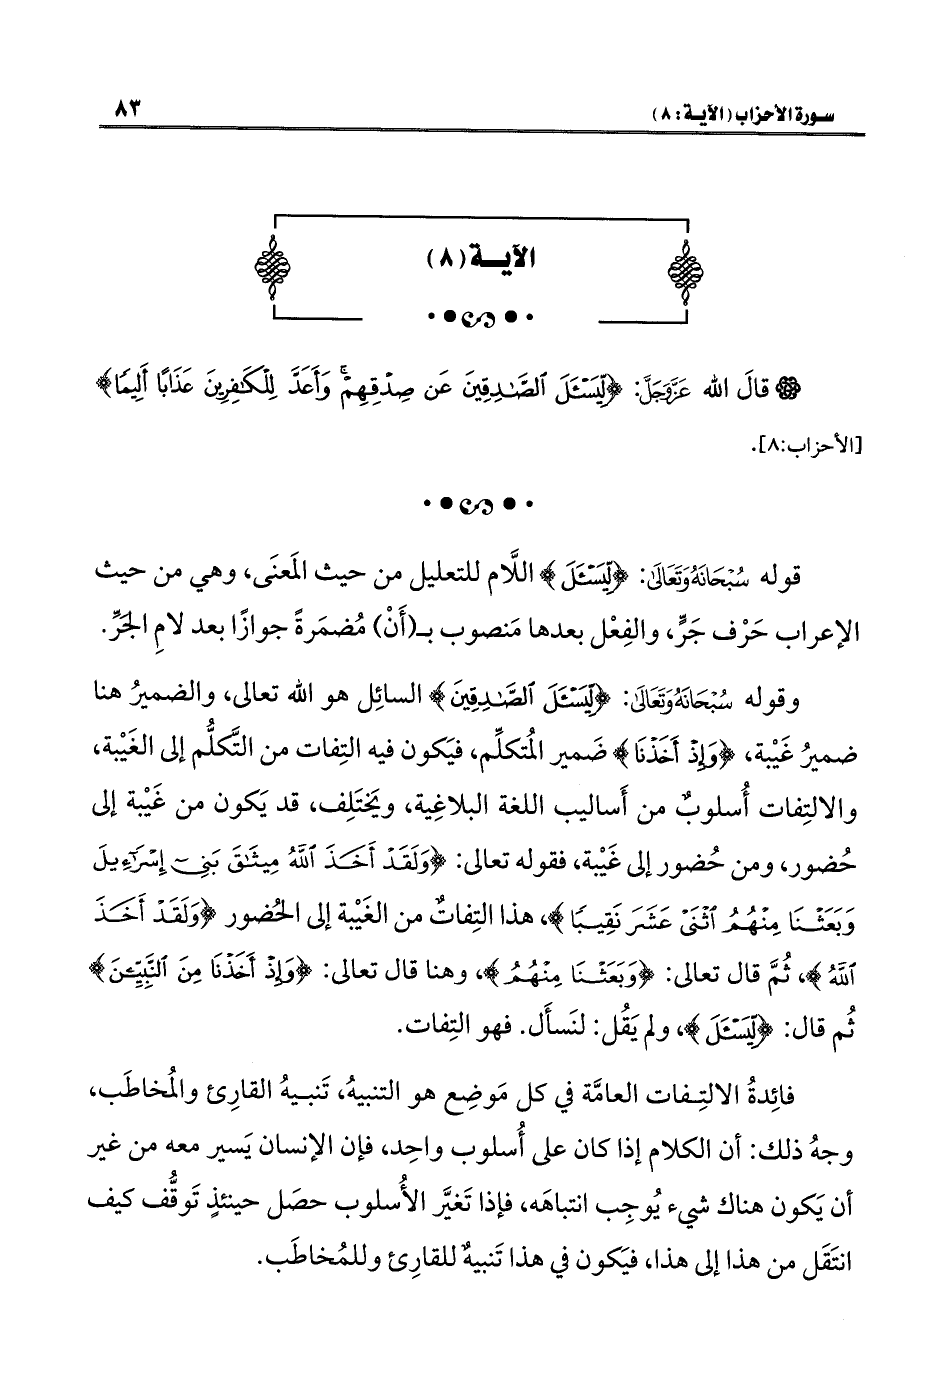 سورة الأحزاب (الآية: ٨)
٨٣
الآية (٨)
قالَ الله عَزَّوَجَلَّ: ﴿لِّيَسْـَٔلَ ٱلصَّـٰدِقِينَ عَن صِدْقِهِمْ ۚ وَأَعَدَّ لِلْكَـٰفِرِينَ عَذَابًا أَلِيمًا﴾
[الأحزاب:٨].
قوله سُبْحَانَهُ وَتَعَالَىٰ: ﴿لِّيَسْـَٔلَ﴾ اللَّام للتعليل من حيث المَعنَى، وهي من حيث
الإعراب حَرْف جَرٍّ، والفِعْل بعدها مَنصوب بـ(أَنْ) مُضمَرةً جوازًا بعد لامِ الجَرِّ.
وقوله سُبْحَانَهُ وَتَعَالَىٰ: ﴿لِّيَسْـَٔلَ ٱلصَّـٰدِقِينَ﴾ السائِل هو الله تعالى، والضميرُ هنا
ضميرُ غَيْبة، ﴿وَإِذْ أَخَذْنَا﴾ ضَمير المُتكلِّم، فيَكون فيه التِفات من التَّكلُّم إلى الغَيْبة،
والالتِفات أُسلوبٌ من أَساليب اللغة البلاغِية، ويَختَلِف، قد يَكون من غَيْبة إلى
حُضور، ومن حُضور إلى غَيْبة، فقوله تعالى: ﴿وَلَقَدْ أَخَذَ ٱللَّهُ مِيثَـٰقَ بَنِىٓ إِسْرَٰٓءِيلَ
وَبَعَثْنَا مِنْهُمُ ٱثْنَىْ عَشَرَ نَقِيبًا﴾، هذا التِفاتٌ من الغَيْبة إلى الحُضور ﴿وَلَقَدْ أَخَذَ
ٱللَّهُ﴾، ثُمَّ قال تعالى: ﴿وَبَعَثْنَا مِنْهُمُ﴾، وهنا قال تعالى: ﴿وَإِذْ أَخَذْنَا مِنَ ٱلنَّبِيِّـۧنَ﴾
ثُم قال: ﴿لِّيَسْـَٔلَ﴾، ولم يَقُل: لنَسأَل. فهو التِفات.
فائِدةُ الالتِفات العامَّة في كل مَوضِع هو التنبيهُ، تَنبيهُ القارِئ والمُخاطَب،
وجهُ ذلك: أن الكلام إذا كان على أُسلوب واحِد، فإن الإنسان يَسير معه من غير
أن يَكون هناك شيء يُوجِب انتباهَه، فإذا تَغيَّر الأُسلوب حصَل حينئذٍ تَوقُّف كيف
انتَقَل من هذا إلى هذا، فيَكون في هذا تَنبيهٌ للقارِئ وللمُخاطَب.